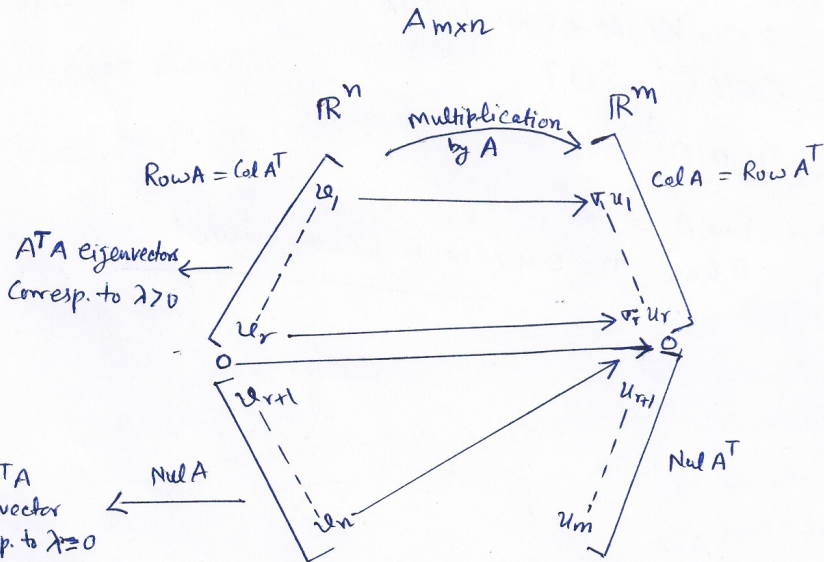 A m×n
ℝⁿ
ℝᵐ
Multiplication
by A
Row A = Col Aᵀ
Col A = Row Aᵀ
v₁
σ₁ u₁
AᵀA eigenvectors
Corresp. to λ>0
vᵣ
σᵣ uᵣ
0
0
vᵣ₊₁
uᵣ₊₁
ᵀA
Nul A
Nul Aᵀ
vector
p. to λ=0
vₙ
uₘ